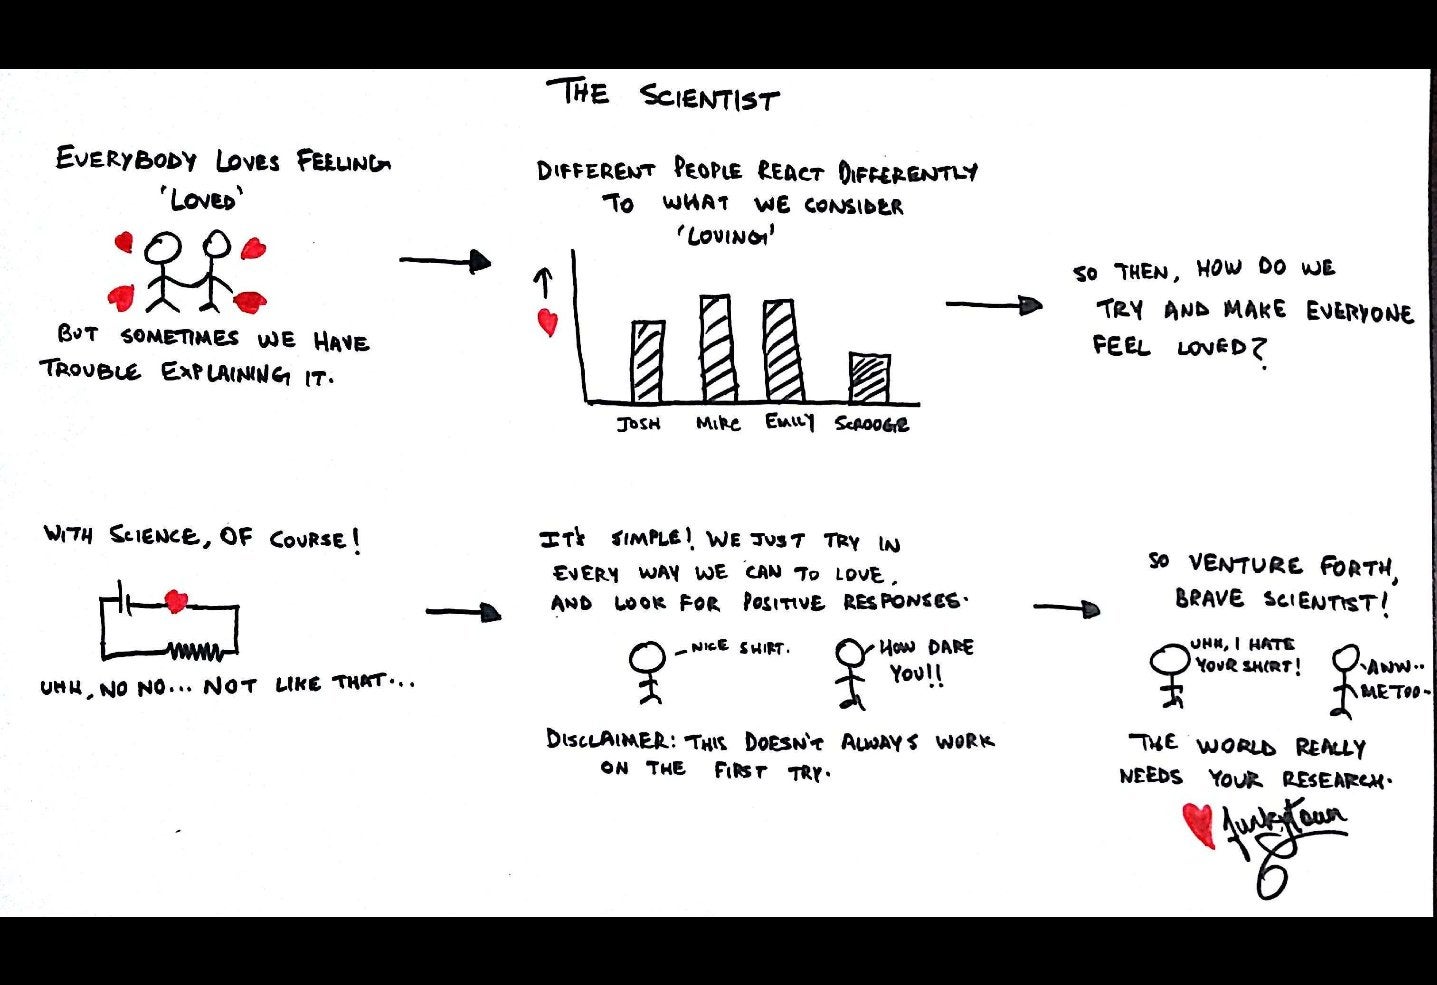 THE SCIENTIST
EVERYBODY LOVES FEELING
'LOVED'
BUT SOMETIMES WE HAVE
TROUBLE EXPLAINING IT.
DIFFERENT PEOPLE REACT DIFFERENTLY
TO WHAT WE CONSIDER
'LOVING'
JOSH MIKE EMILY SCROOGE
SO THEN, HOW DO WE
TRY AND MAKE EVERYONE
FEEL LOVED?
WITH SCIENCE, OF COURSE!
UHH, NO NO... NOT LIKE THAT...
IT'S SIMPLE! WE JUST TRY IN
EVERY WAY WE CAN TO LOVE,
AND LOOK FOR POSITIVE RESPONSES.
NICE SHIRT.
HOW DARE
YOU!!
DISCLAIMER: THIS DOESN'T ALWAYS WORK
ON THE FIRST TRY.
SO VENTURE FORTH,
BRAVE SCIENTIST!
UHH, I HATE
YOUR SHIRT!
AWW..
ME TOO.
THE WORLD REALLY
NEEDS YOUR RESEARCH.